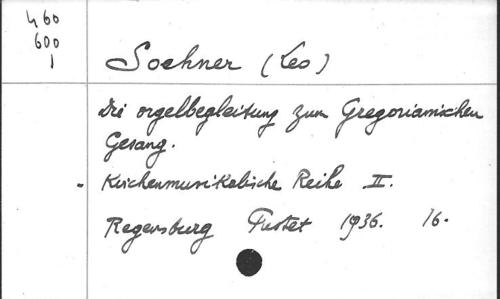 460
600
1
Soehner (Leo)
Die orgelbegleitung zum Gregorianischen
Gesang.
- Kirchenmusikalische Reihe II.
Regensburg Pustet 1936. 16.